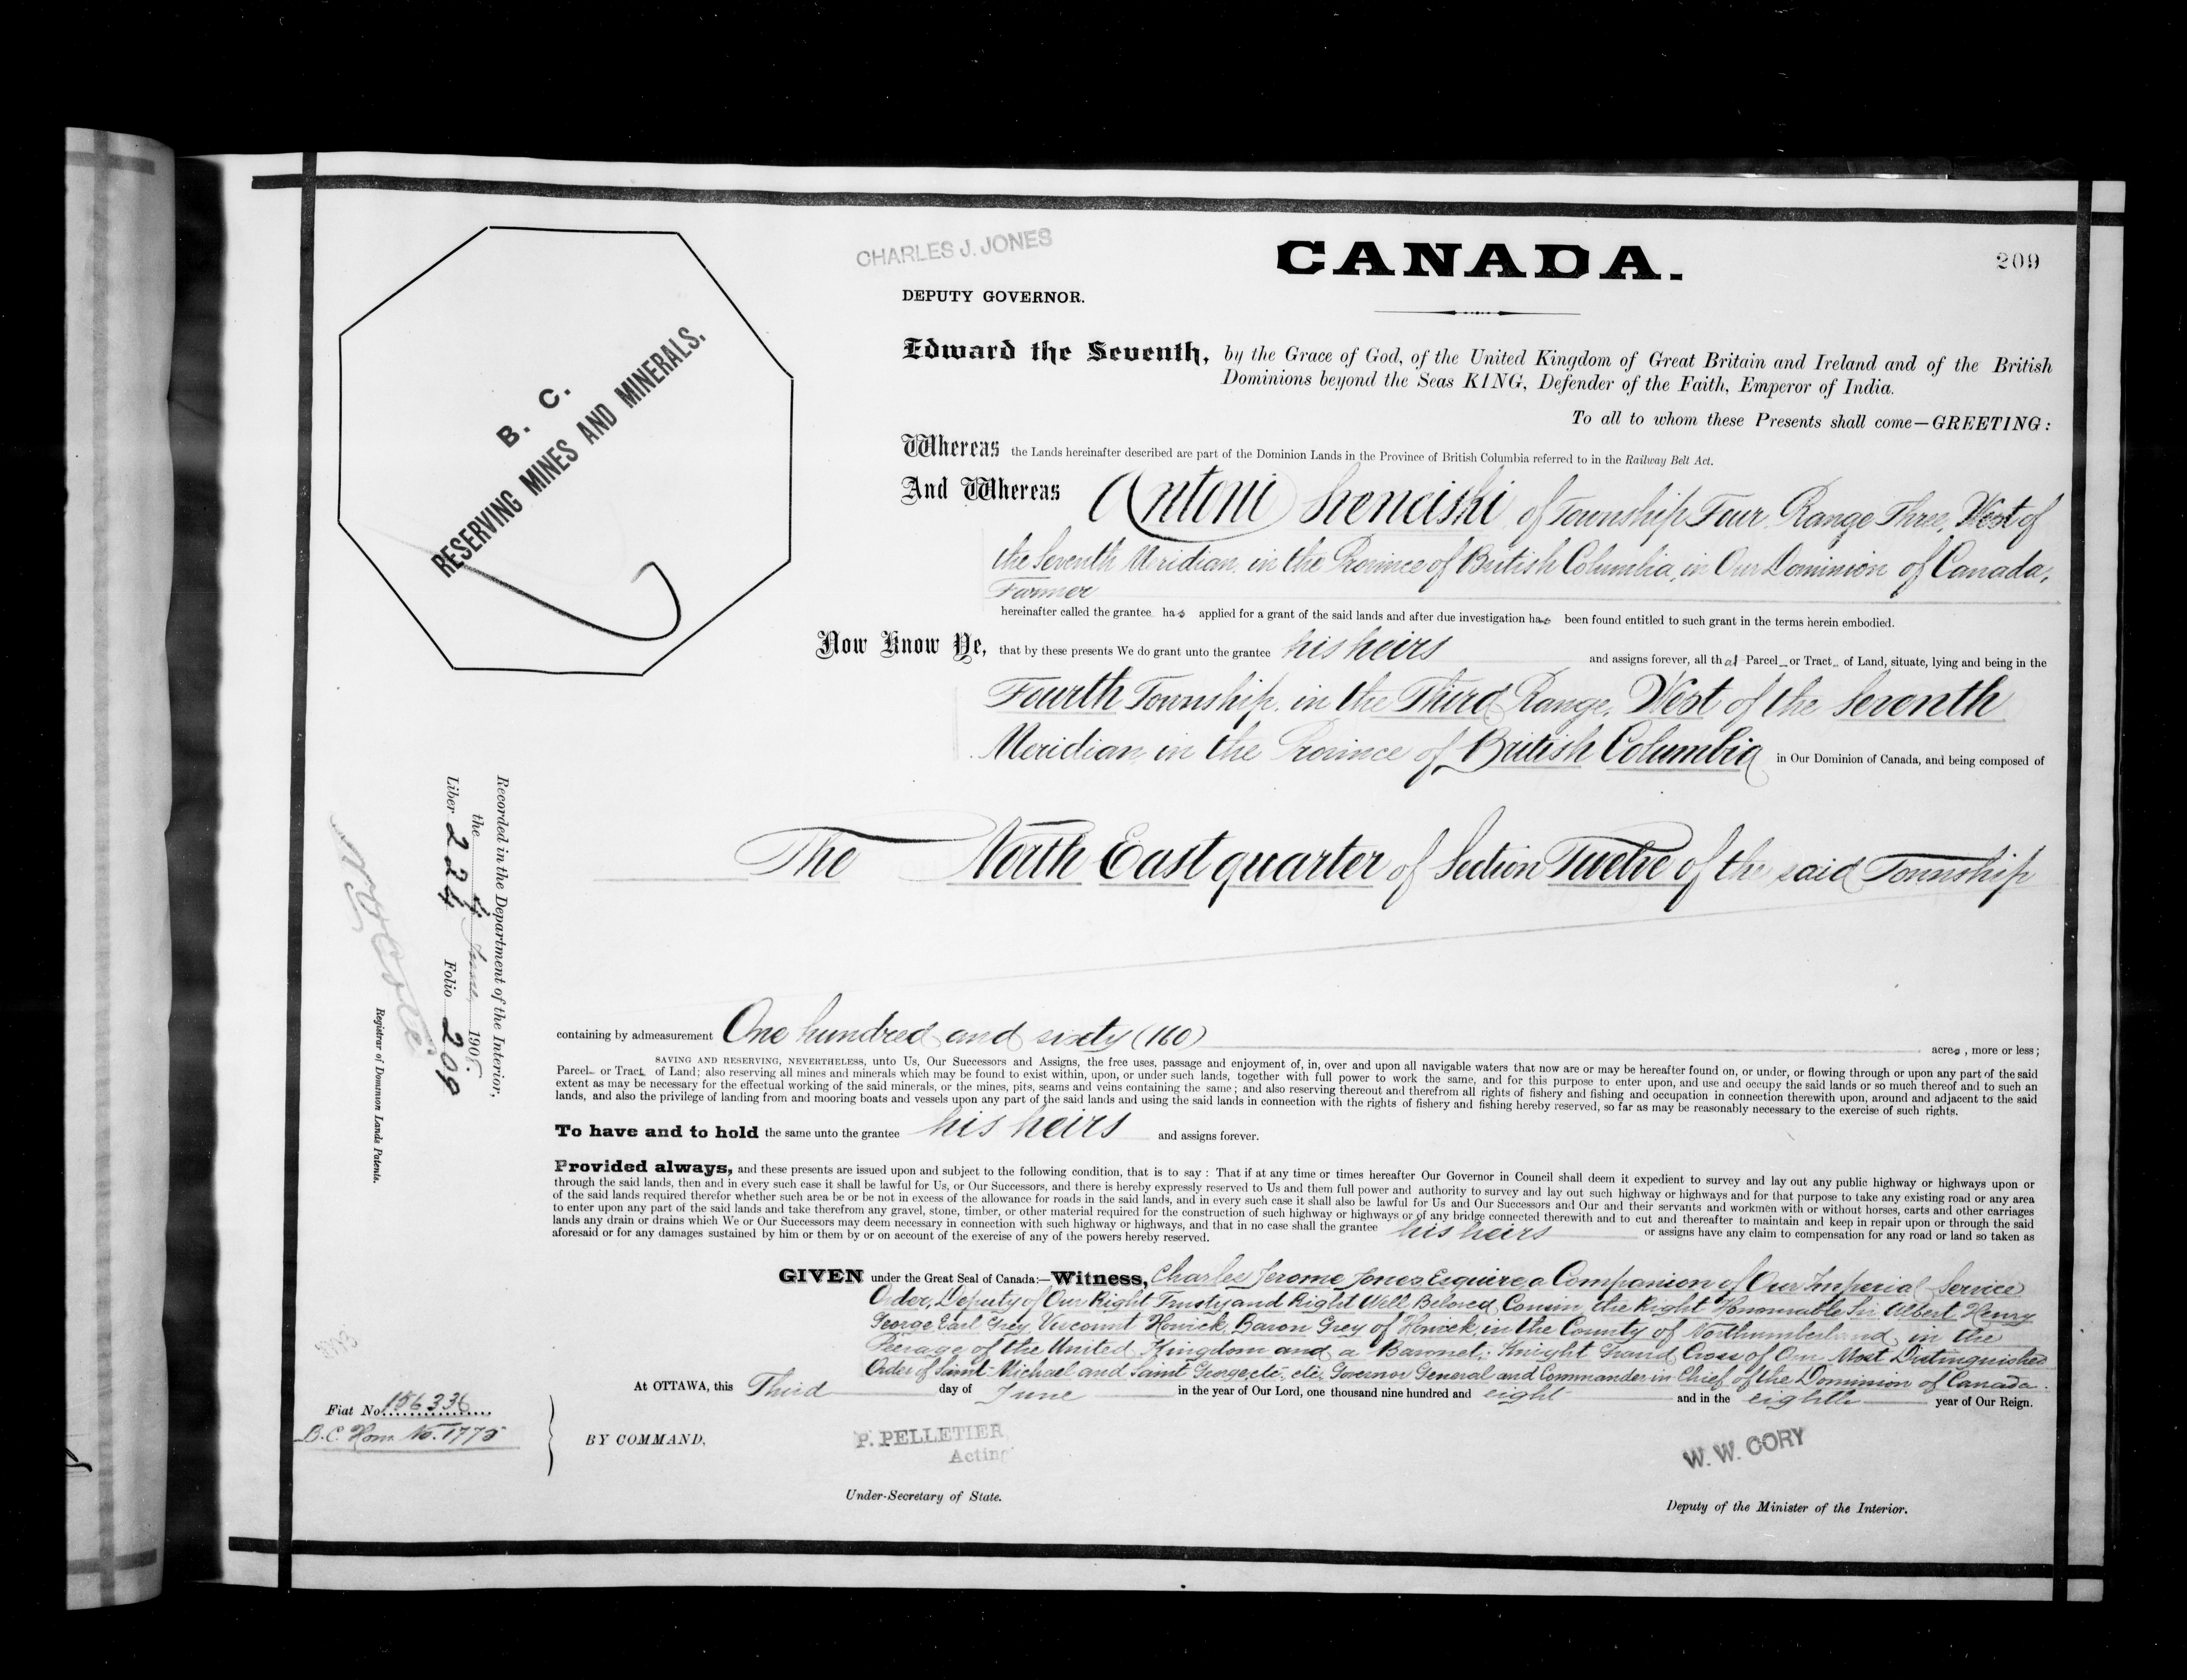 CHARLES J. JONES
CANADA.
209
DEPUTY GOVERNOR.
B. C.
RESERVING MINES AND MINERALS.
Edward the Seventh, by the Grace of God, of the United Kingdom of Great Britain and Ireland and of the British
Dominions beyond the Seas KING, Defender of the Faith, Emperor of India.
To all to whom these Presents shall come—GREETING:
Whereas the Lands hereinafter described are part of the Dominion Lands in the Province of British Columbia referred to in the Railway Belt Act.
And Whereas Antoni of Township Four Range Three, West of
the Seventh Meridian in the Province of British Columbia, in Our Dominion of Canada,
Farmer
hereinafter called the grantee has applied for a grant of the said lands and after due investigation has been found entitled to such grant in the terms herein embodied.
Now Know Ye, that by these presents We do grant unto the grantee his heirs and assigns forever, all that Parcel or Tract of Land, situate, lying and being in the
Fourth Township in the Third Range, West of the Seventh
Meridian in the Province of British Columbia in Our Dominion of Canada, and being composed of
The North East quarter of Section Twelve of the said Township
containing by admeasurement One hundred and sixty (160) acres, more or less;
SAVING AND RESERVING, NEVERTHELESS, unto Us, Our Successors and Assigns, the free uses, passage and enjoyment of, in, over and upon all navigable waters that now are or may be hereafter found on, or under, or flowing through or upon any part of the said
Parcel or Tract of Land; also reserving all mines and minerals which may be found to exist within, upon, or under such lands, together with full power to work the same, and for this purpose to enter upon, and use and occupy the said lands or so much thereof and to such an
extent as may be necessary for the effectual working of the said minerals, or the mines, pits, seams and veins containing the same; and also reserving thereout and therefrom all rights of fishery and fishing and occupation in connection therewith upon, around and adjacent to the said
lands, and also the privilege of landing from and mooring boats and vessels upon any part of the said lands and using the said lands in connection with the rights of fishery and fishing hereby reserved, so far as may be reasonably necessary to the exercise of such rights.
To have and to hold the same unto the grantee his heirs and assigns forever.
Provided always, and these presents are issued upon and subject to the following condition, that is to say: That if at any time or times hereafter Our Governor in Council shall deem it expedient to survey and lay out any public highway or highways upon or
through the said lands, then and in every such case it shall be lawful for Us, or Our Successors, and there is hereby expressly reserved to Us and them full power and authority to survey and lay out such highway or highways and for that purpose to take any existing road or any area
of the said lands required therefor whether such area be or be not in excess of the allowance for roads in the said lands, and in every such case it shall also be lawful for Us and Our Successors and Our and their servants and workmen with or without horses, carts and other carriages
to enter upon any part of the said lands and take therefrom any gravel, stone, timber, or other material required for the construction of such highway or highways or of any bridge connected therewith and to cut and thereafter to maintain and keep in repair upon or through the said
lands any drain or drains which We or Our Successors may deem necessary in connection with such highway or highways, and that in no case shall the grantee his heirs or assigns have any claim to compensation for any road or land so taken as
aforesaid or for any damages sustained by him or them by or on account of the exercise of any of the powers hereby reserved.
GIVEN under the Great Seal of Canada:—Witness, Charles Jerome Jones Esquire a Companion of Our Imperial Service
Order, Deputy of Our Right Trusty and Right Well Beloved Cousin the Right Honourable Sir Albert Henry
George Earl Grey, Viscount Howick, Baron Grey of Howick, in the County of Northumberland, in the
Peerage of the United Kingdom and a Baronet; Knight Grand Cross of Our Most Distinguished
Order of Saint Michael and Saint George etc. etc. Governor General and Commander in Chief of the Dominion of Canada.
At OTTAWA, this Third day of June in the year of Our Lord, one thousand nine hundred and eight and in the eighth year of Our Reign.
BY COMMAND,
P. PELLETIER
Acting
Under-Secretary of State.
W. W. CORY
Deputy of the Minister of the Interior.
Recorded in the Department of the Interior,
the 4 June 1908.
Liber 224 Folio 209
Registrar of Dominion Lands Patents.
Fiat No. 156336
B.C. Hom. No. 1775